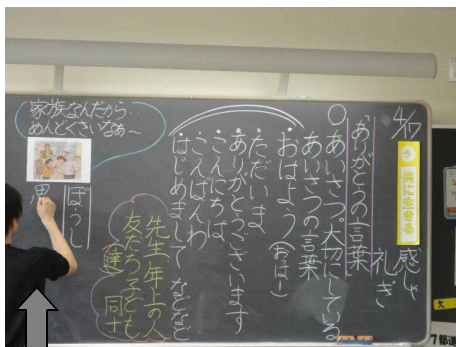 4/17
共に生きる
感しゃ
礼ぎ
ありがとうの言葉
○あいさつ。大切にしている
あいさつの言葉
・おはよう(おはー)
・ただいま
・ありがとうございます
・こんにちは
・こんばんわ
・はじめまして などなど
先生 年上の人
友だち 子ども
(達) 同士
家族なんだから…
めんどくさいなぁ〜
ぼうし
男
欠
7都道